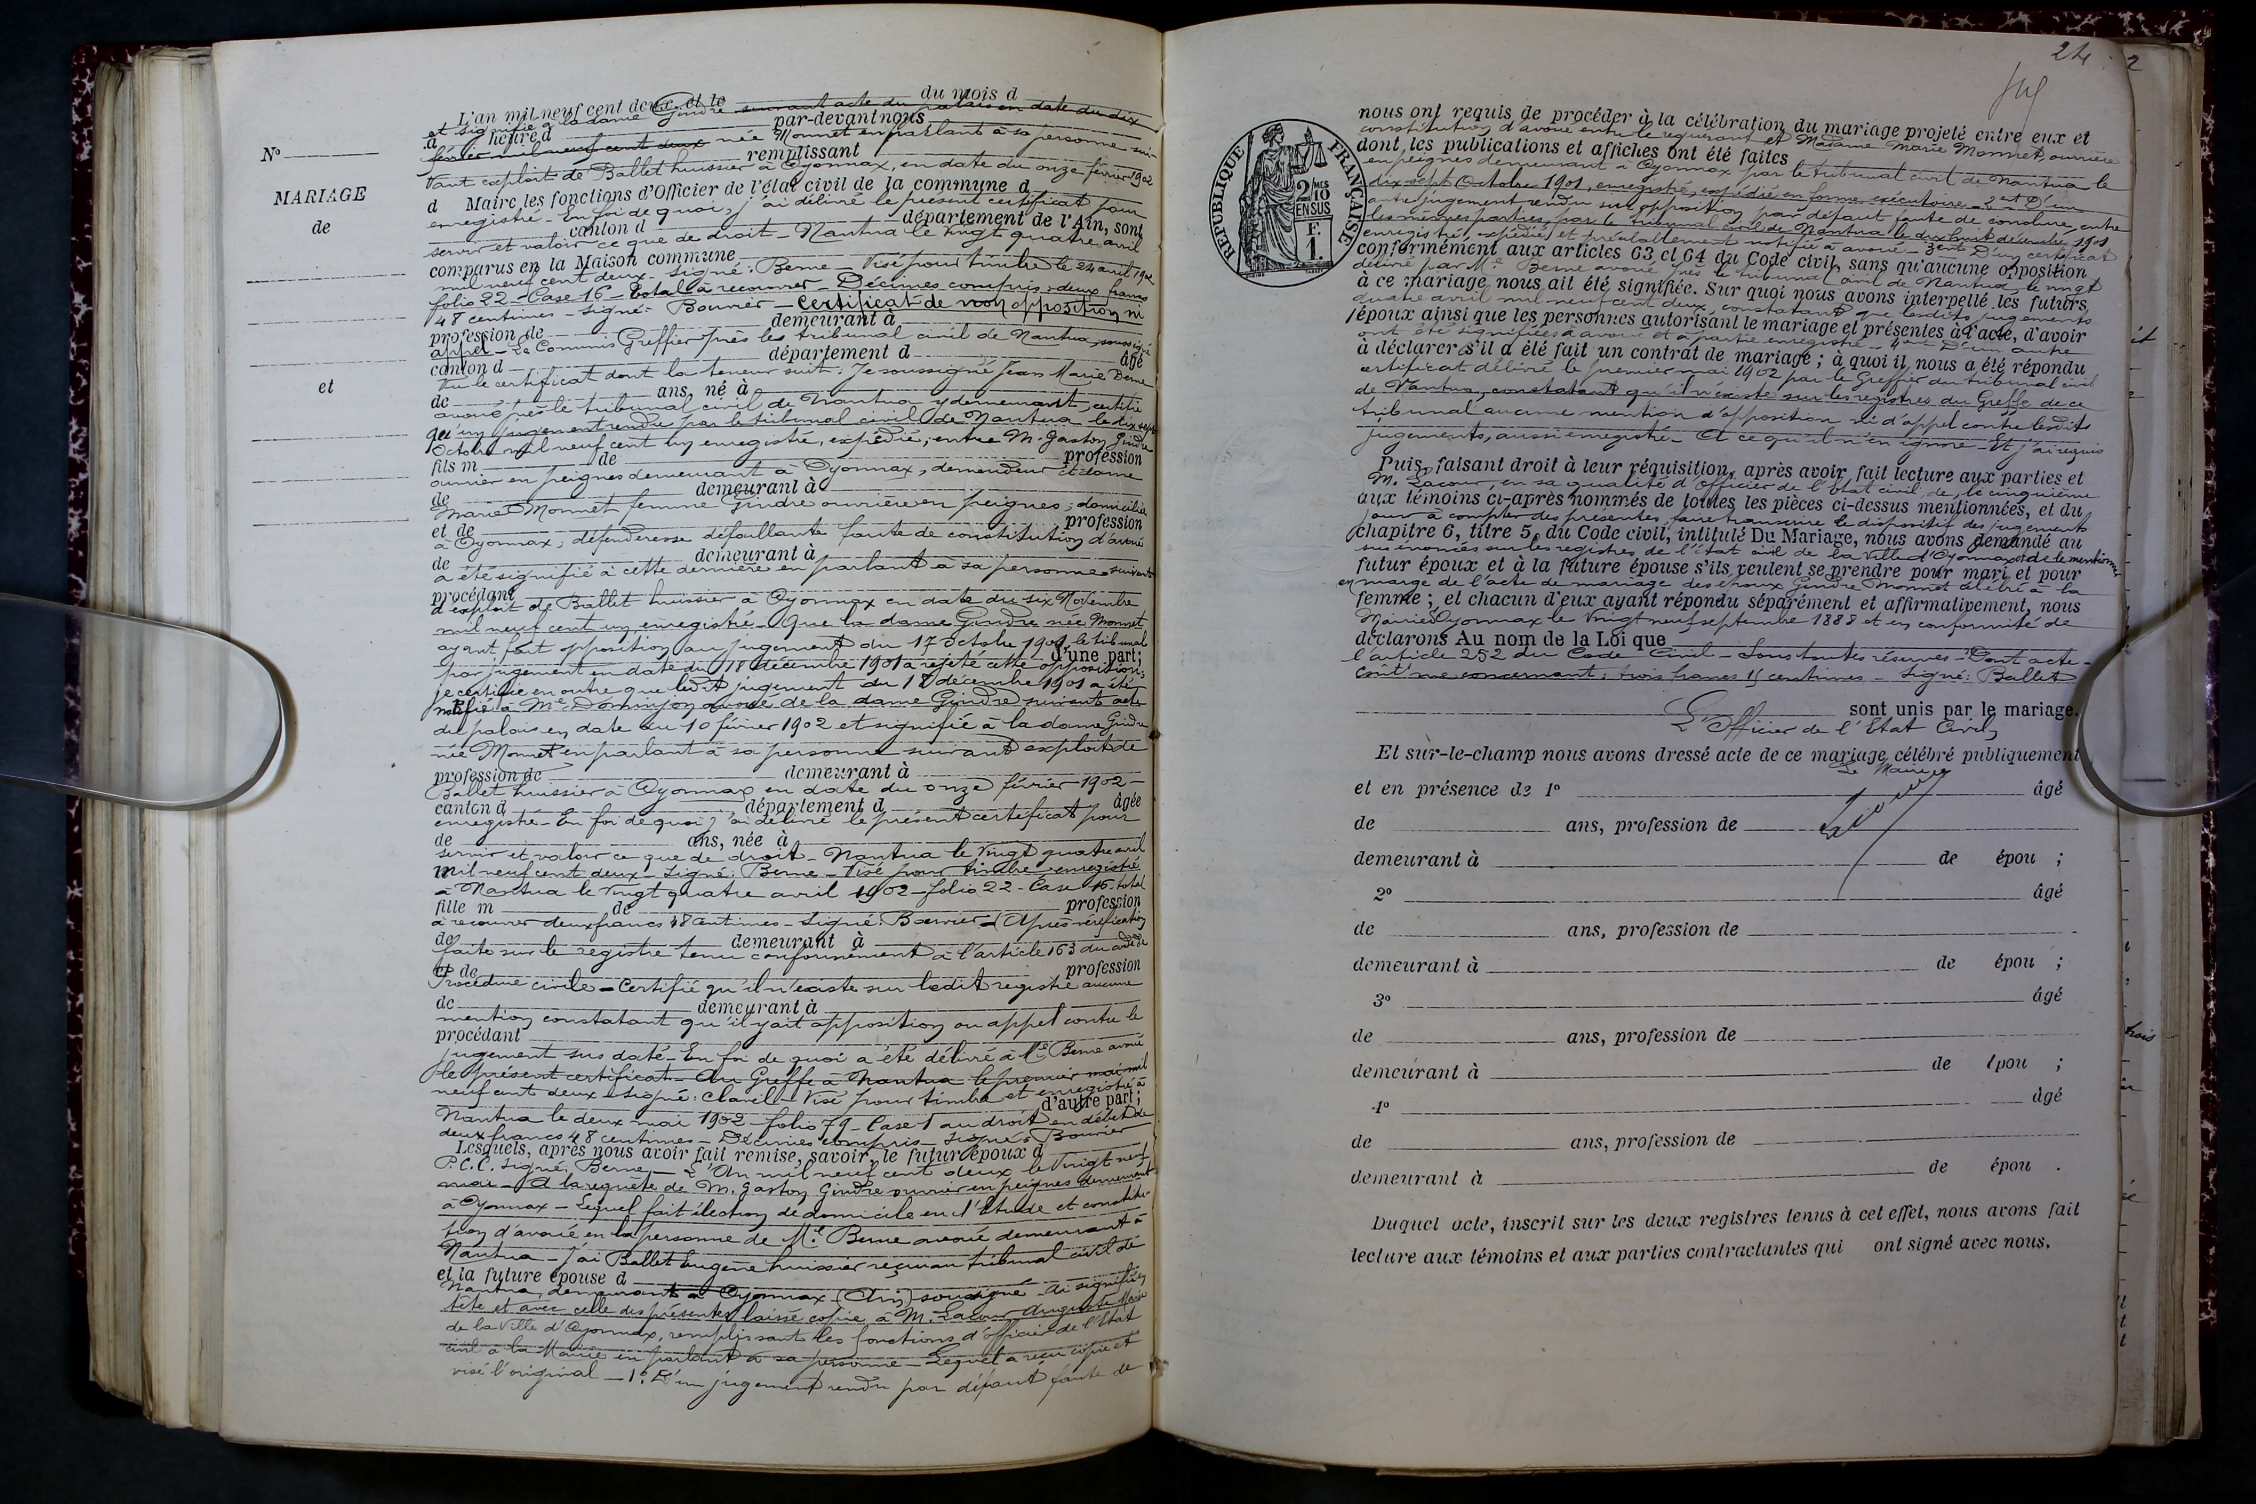 L'an mil neuf cent deux et le du mois d
suivant acte du palais en date du dix
et signifié à la dame Gindre
à heure d par-devant nous
février mil neuf cent deux née Monnet en parlant à sa personne sui-
remplissant
vant exploit de Ballet huissier à Oyonnax, en date du onze février 1902
d Maire les fonctions d'Officier de l'état civil de la commune d
enregistré - En foi de quoi, j'ai délivré le présent certificat pour
canton d département de l'Ain, sont
servir et valoir ce que de droit - Nantua le vingt quatre avril
comparus en la Maison commune
mil neuf cent deux - Signé: Berne - Visé pour timbre le 24 avril 1902
folio 22 - Case 16 - Total à recouvrer - Décimes compris - deux francs
48 centimes - signé: Bouvier - Certificat de non opposition ni
profession de demeurant à
appel - Le Commis Greffier près les tribunal civil de Nantua, soussigné
canton d département d âgé
Vu le certificat dont la teneur suit: Je soussigné Jean Marie Berne
de ans, né à
avoué près le tribunal civil de Nantua y demeurant, certifie
qu'un jugement rendu par le tribunal civil de Nantua le dix sept
Octobre mil neuf cent un enregistré, expédié, entre M. Gaston Gindre
fils m de profession
ouvrier en peignes demeurant à Oyonnax, demandeur et dame
de demeurant à
Marie Monnet femme Gindre ouvrière en peignes, domiciliée
et de profession
à Oyonnax, défenderesse défaillante faute de constitution d'avoué
de demeurant à
a été signifié à cette dernière en parlant à sa personne suivant
procédant
d'exploit de Ballet huissier à Oyonnax en date du six Novembre
mil neuf cent un enregistré - Que la dame Gindre née Monnet
ayant fait opposition au jugement du 17 octobre 1901, le tribunal
d'une part;
par jugement en date du 18 décembre 1901 a rejeté cette opposition;
je certifie en outre que ledit jugement du 18 décembre 1901 a été
notifié à Me Dominjon avoué de la dame Gindre suivant acte
du palais en date du 10 février 1902 et signifié à la dame Gindre
née Monnet en parlant à sa personne suivant exploit de
profession de demeurant à
Ballet huissier à Oyonnax en date du onze février 1902 -
canton d département d âgée
enregistré - En foi de quoi j'ai délivré le présent certificat pour
de ans, née à
servir et valoir ce que de droit - Nantua le vingt quatre avril
mil neuf cent deux - Signé: Berne - Visé pour timbre enregistré
à Nantua le vingt quatre avril 1902 - folio 22 - Case 16 - total
fille m de profession
à recouvrer deux francs 48 centimes - Signé: Bouvier - Après vérification
de demeurant à
faite sur le registre tenu conformément à l'article 163 du code de
et de profession
Procédure civile - Certifie qu'il n'existe sur ledit registre aucune
de demeurant à
mention constatant qu'il y ait opposition ou appel contre le
procédant
jugement sus daté - En foi de quoi a été délivré à Me Berne avoué
le présent certificat - Au Greffe à Nantua le premier mai mil
neuf cent deux - signé: Clavel - Visé pour timbre et enregistré à
d'autre part;
Nantua le deux mai 1902 - folio 79 - Case 1 au droit en débet de
deux francs 48 centimes - Décimes compris - Signé: Bouvier
Lesquels, après nous avoir fait remise, savoir, le futur époux d
P.C.C. Signé, Berne - L'An mil neuf cent deux le vingt neuf
mai - A la requête de M. Gaston Gindre ouvrier en peignes demeurant
à Oyonnax - Lequel fait élection de domicile en l'Etude et constitu-
tion d'avoué en la personne de Me Berne avoué demeurant à
Nantua - j'ai Ballet Eugène huissier reçu au tribunal civil de
et la future épouse d
Nantua, demeurant à Oyonnax (Ain) soussigné - Ai signifié en
tête et avec celle des présentes laissé copie à M. Lacour Auguste Maire
de la Ville d'Oyonnax, remplissant les fonctions d'officier de l'Etat
civil à la Mairie en parlant à sa personne - Lequel a reçu copie et
visé l'original - 1° D'un jugement rendu par défaut faute de
N°
MARIAGE
de
et
24
nous ont requis de procéder à la célébration du mariage projeté entre eux et
constitution d'avoué entre le requérant et Madame Marie Monnet, ouvrière
dont les publications et affiches ont été faites
en peignes demeurant à Oyonnax par le tribunal civil de Nantua le
dix sept Octobre 1901, enregistré, expédié en forme exécutoire - 2ent D'un
autre jugement rendu sur opposition par défaut faute de conclure, entre
les mêmes parties par le tribunal civil de Nantua le dix huit décembre 1901
enregistré, expédié et préalablement notifié à avoué - 3ent D'un certificat
conformément aux articles 63 et 64 du Code civil, sans qu'aucune opposition
délivré par Me Berne avoué près le tribunal civil de Nantua le vingt
à ce mariage nous ait été signifiée. Sur quoi nous avons interpellé les futurs
quatre avril mil neuf cent deux, constatant que lesdits jugements
époux ainsi que les personnes autorisant le mariage et présentes à l'acte, d'avoir
ont été signifiés à avoué et à partie enregistré - 4ent D'un autre
à déclarer s'il a été fait un contrat de mariage; à quoi il nous a été répondu
certificat délivré le premier mai 1902 par le Greffier du tribunal civil
de Nantua, constatant qu'il n'existe sur les registres du Greffe de ce
tribunal aucune mention d'opposition ni d'appel contre lesdits
jugements, aussi enregistré - A ce qu'il n'en ignore - Et j'ai requis
Puis, faisant droit à leur réquisition, après avoir fait lecture aux parties et
M. Lacour, en sa qualité d'officier de l'Etat civil, de, le cinquième
aux témoins ci-après nommés de toutes les pièces ci-dessus mentionnées, et du
jour à compter des présentes, faire transcrire le dispositif des jugements
chapitre 6, titre 5, du Code civil, intitulé Du Mariage, nous avons demandé au
sus énoncés sur les registres de l'état civil de la ville d'Oyonnax et de le mentionner
futur époux et à la future épouse s'ils veulent se prendre pour mari et pour
en marge de l'acte de mariage des époux Gindre Monnet célébré à la
femme; et chacun d'eux ayant répondu séparément et affirmativement, nous
Mairie Oyonnax le vingt neuf septembre 1888 et en conformité de
déclarons Au nom de la Loi que
l'article 252 du Code Civil - Sous toutes réserves - Dont acte -
Coût me concernant: trois francs 15 centimes - Signé: Ballet
sont unis par le mariage.
L'Officier de l'Etat Civil,
Et sur-le-champ nous avons dressé acte de ce mariage célébré publiquement
Le Maire
et en présence de 1° âgé
de ans, profession de
demeurant à de épou ;
2° âgé
de ans, profession de
demeurant à de épou ;
3° âgé
de ans, profession de
demeurant à de épou ;
4° âgé
de ans, profession de
demeurant à de épou .
Duquel acte, inscrit sur les deux registres tenus à cet effet, nous avons fait
lecture aux témoins et aux parties contractantes qui ont signé avec nous.
RÉPUBLIQUE FRANÇAISE
2/10MES
EN SUS
F.
1.